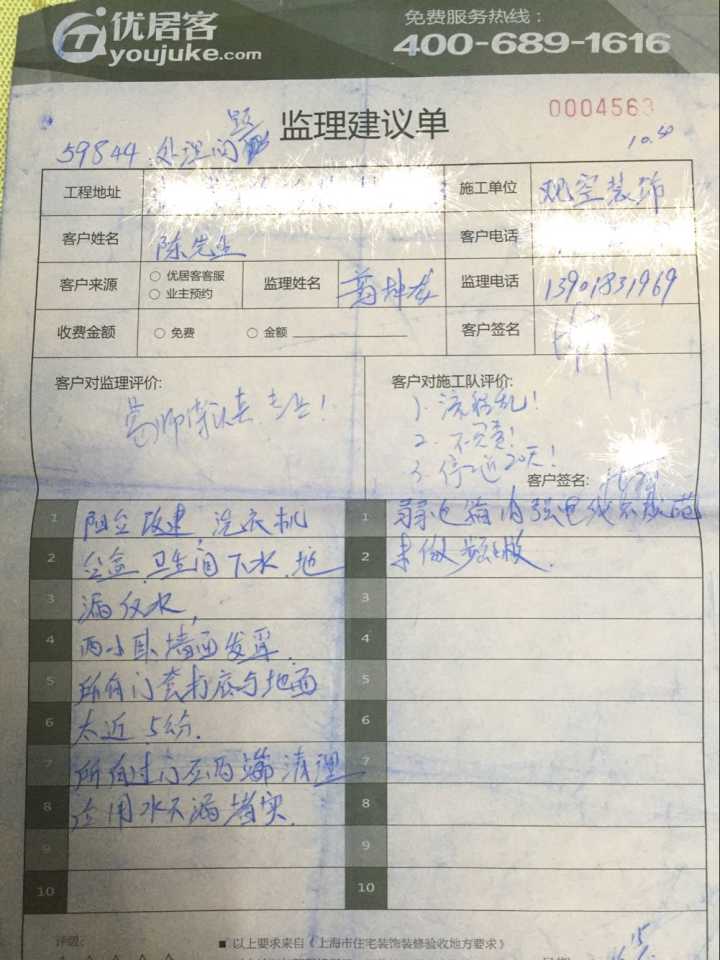 优居客
youjuke.com
免费服务热线：
400-689-1616
监理建议单
0004563
59844 处理问题
工程地址
施工单位 观空装饰
客户姓名 陈先生
客户电话
客户来源 ○ 优居客客服 ○ 业主预约
监理姓名
监理电话 13901831969
收费金额 ○ 免费 ○ 金额
客户签名
客户对监理评价:
葛师傅认真专业！
客户对施工队评价:
1. 流程乱！
2. 不负责！
3. 停工近20天！
客户签名:
1 阳台改建，洗衣机
2 卫生间下水.地
3 漏反水，
4 两小卧墙面发霉.
5 所有门套打底与地面
6 太近 5份.
7 所有过门石两端清理
8 应用水不漏堵实.
9
10
1 弱电箱内强电线不规范
2 未做
3
4
5
6
7
8
9
10
评级:
■ 以上要求来自《上海市住宅装饰装修验收地方要求》